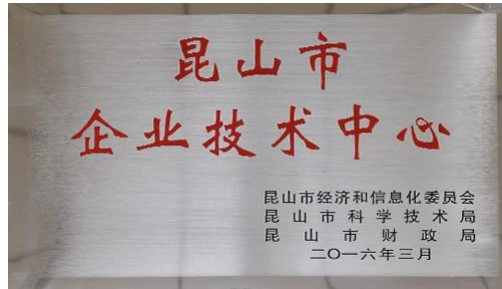 昆山市
企业技术中心
昆山市经济和信息化委员会
昆山市科学技术局
昆山市财政局
二〇一六年三月